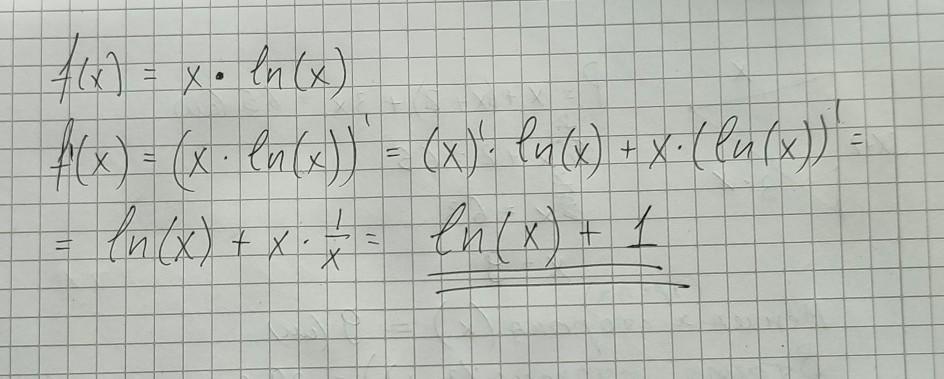 f(x) = x · ln(x)
f'(x) = (x · ln(x))' = (x)' · ln(x) + x · (ln(x))' =
= ln(x) + x · 1/x = ln(x) + 1